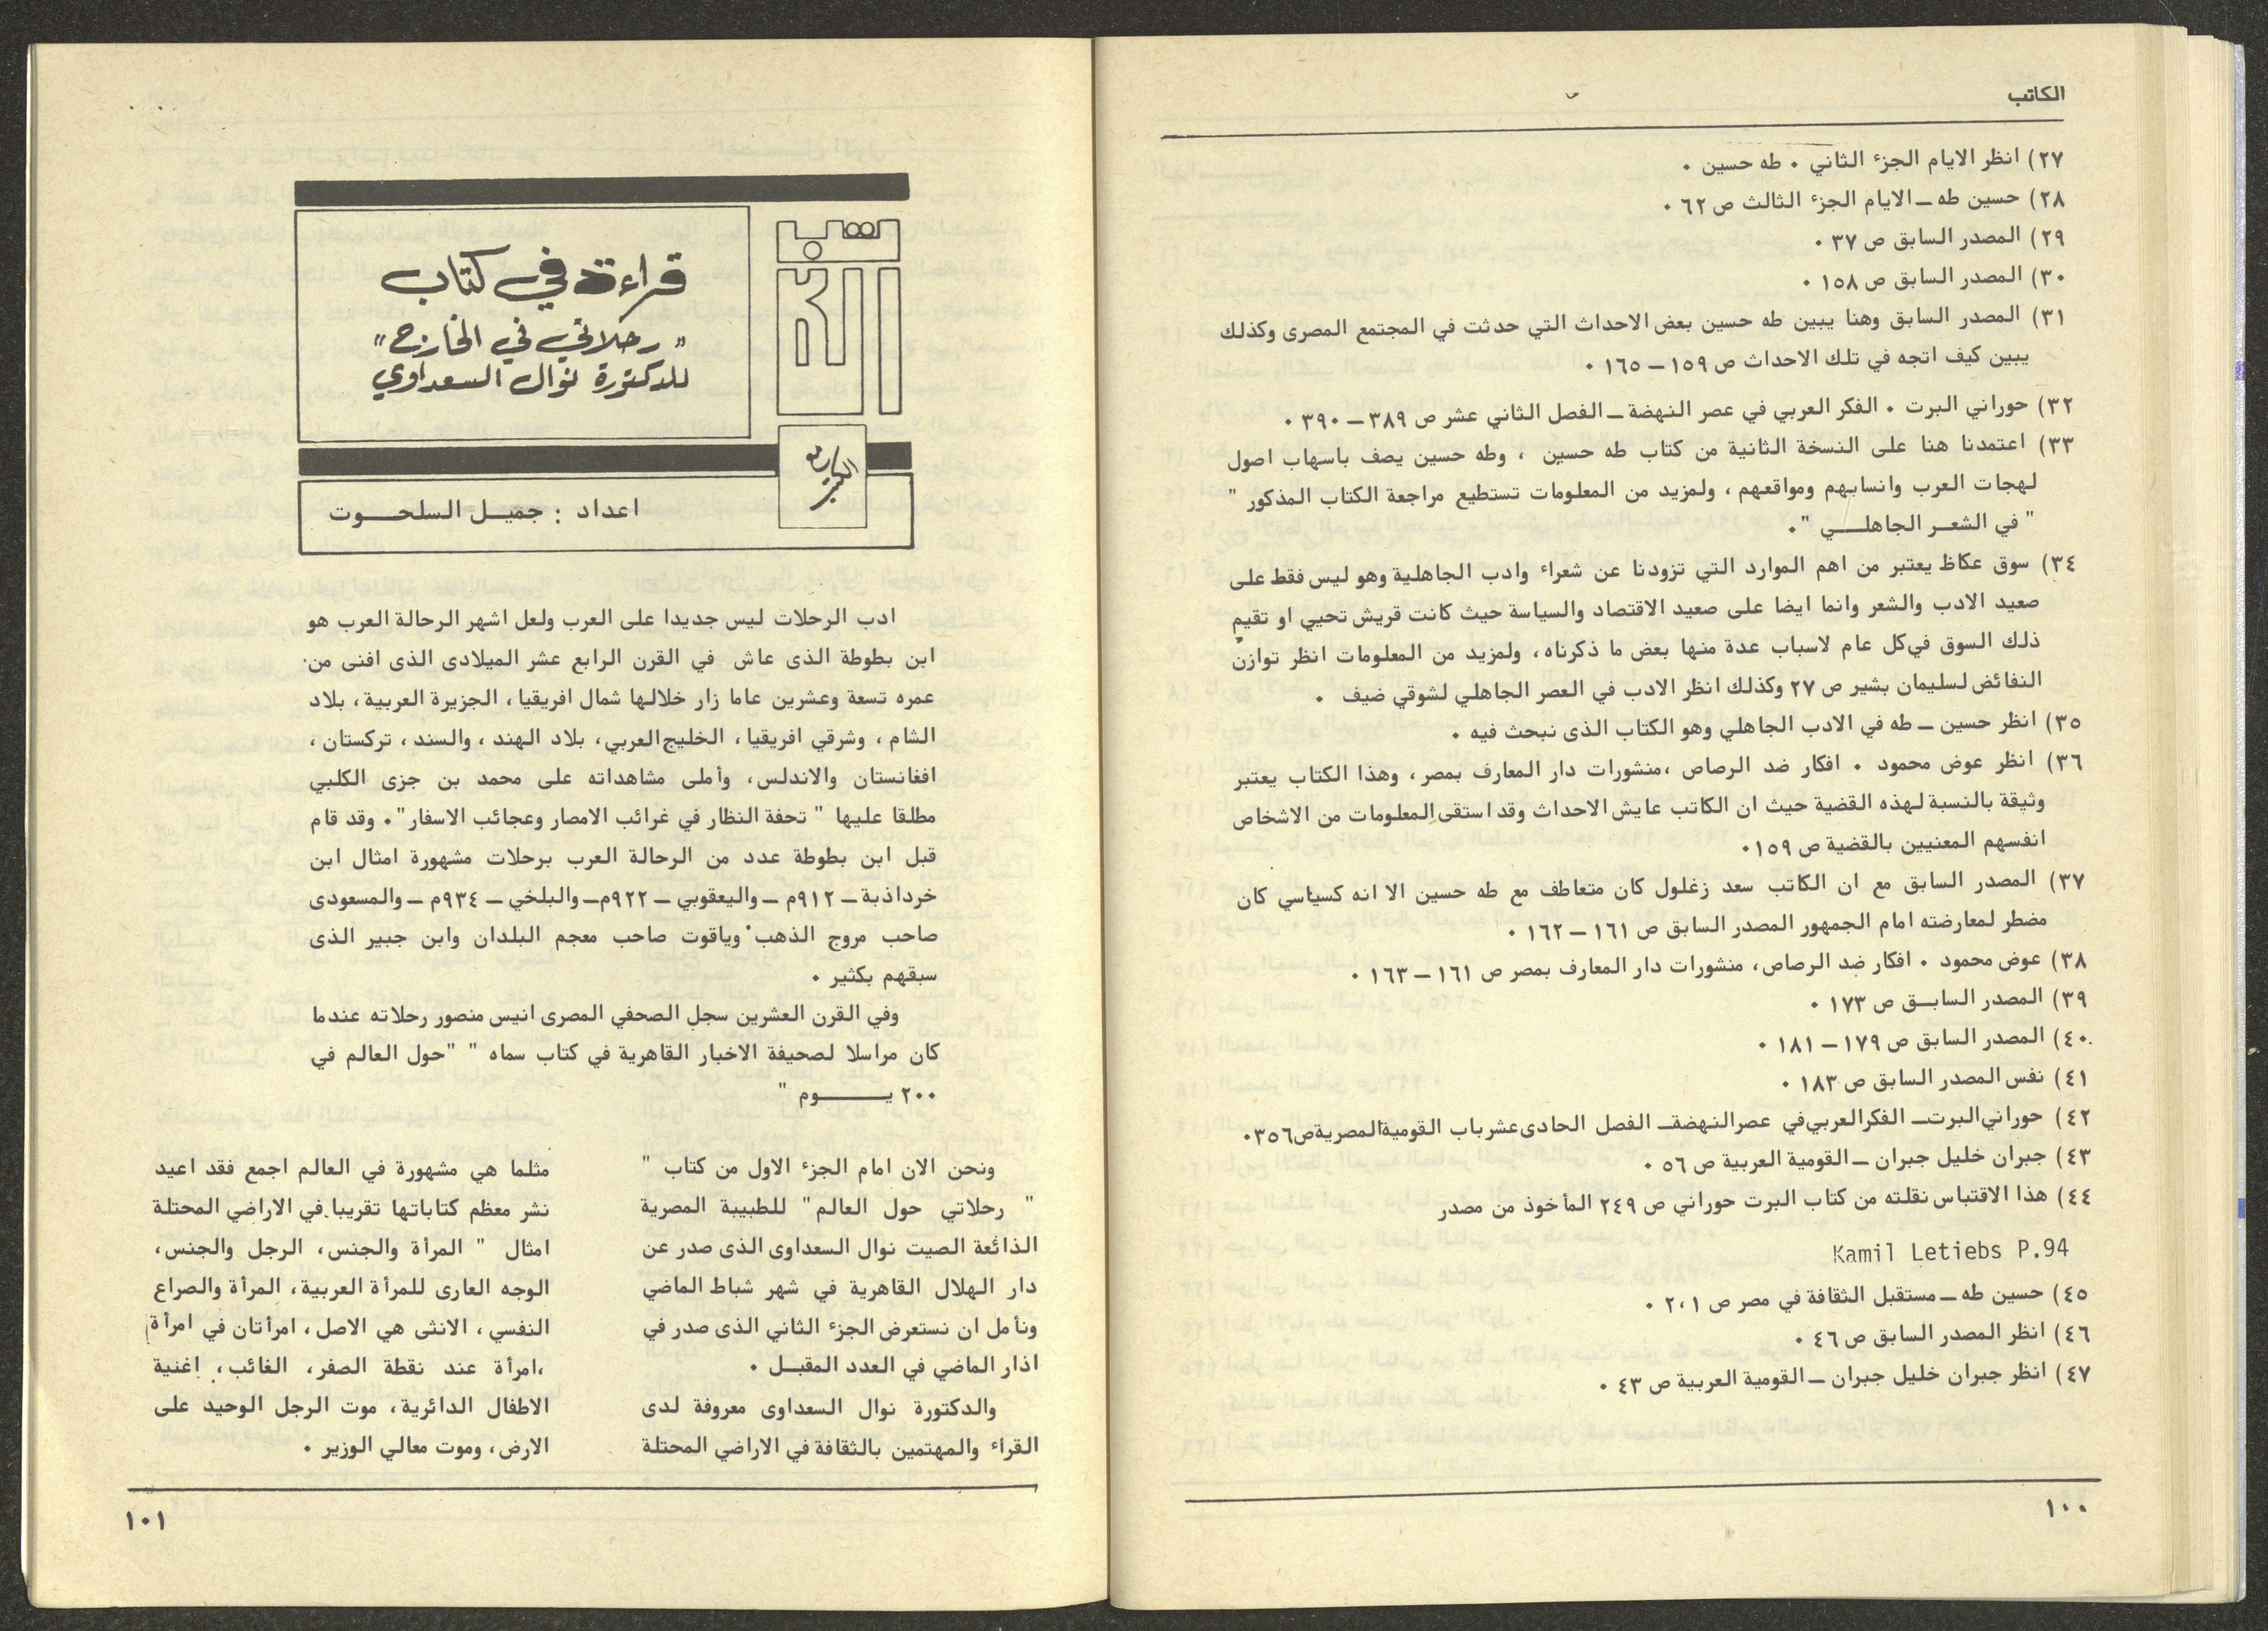 الكاتب
٢٧) انظر الايام الجزء الثاني ٠ طه حسين ٠
٢٨) حسين طه ــ الايام الجزء الثالث ص ٦٢ ٠
٢٩) المصدر السابق ص ٣٧ ٠
٣٠) المصدر السابق ص ١٥٨ ٠
٣١) المصدر السابق وهنا يبين طه حسين بعض الاحداث التي حدثت في المجتمع المصرى وكذلك
يبين كيف اتجه في تلك الاحداث ص ١٥٩ ــ ١٦٥ ٠
٣٢) حوراني البرت ٠ الفكر العربي في عصر النهضة ــ الفصل الثاني عشر ص ٣٨٩ ــ ٣٩٠ ٠
٣٣) اعتمدنا هنا على النسخة الثانية من كتاب طه حسين ، وطه حسين يصف باسهاب اصول
لهجات العرب وانسابهم ومواقعهم ، ولمزيد من المعلومات تستطيع مراجعة الكتاب المذكور "
" في الشعــر الجاهلــــي "٠
٣٤) سوق عكاظ يعتبر من اهم الموارد التي تزودنا عن شعراء وادب الجاهلية وهو ليس فقط على
صعيد الادب والشعر وانما ايضا على صعيد الاقتصاد والسياسة حيث كانت قريش تحيي او تقيم
ذلك السوق في كل عام لاسباب عدة منها بعض ما ذكرناه ، ولمزيد من المعلومات انظر توازن
النفائض لسليمان بشير ص ٢٧ وكذلك انظر الادب في العصر الجاهلي لشوقي ضيف ٠
٣٥) انظر حسين ــ طه في الادب الجاهلي وهو الكتاب الذى نبحث فيه ٠
٣٦) انظر عوض محمود ٠ افكار ضد الرصاص ،منشورات دار المعارف بمصر ، وهذا الكتاب يعتبر
وثيقة بالنسبة لهذه القضية حيث ان الكاتب عايش الاحداث وقد استقى المعلومات من الاشخاص
انفسهم المعنيين بالقضية ص ١٥٩٠
٣٧) المصدر السابق مع ان الكاتب سعد زغلول كان متعاطف مع طه حسين الا انه كسياسي كان
مضطر لمعارضته امام الجمهور المصدر السابق ص ١٦١ ــ ١٦٢ ٠
٣٨) عوض محمود ٠ افكار ضد الرصاص، منشورات دار المعارف بمصر ص ١٦١ ــ ١٦٣ ٠
٣٩) المصدر السابــق ص ١٧٣ ٠
٤٠) المصدر السابق ص ١٧٩ ــ ١٨١ ٠
٤١) نفس المصدر السابق ص ١٨٣ ٠
٤٢) حوراني البرت ــ الفكر العربي في عصر النهضة ــ الفصل الحادى عشر باب القومية المصرية ص٣٥٦٠
٤٣) جبران خليل جبران ــ القومية العربية ص ٥٦ ٠
٤٤) هذا الاقتباس نقلته من كتاب البرت حوراني ص ٢٤٩ المأخوذ من مصدر
Kamil Letiebs P.94
٤٥) حسين طه ــ مستقبل الثقافة في مصر ص ٢،١ ٠
٤٦) انظر المصدر السابق ص ٤٦ ٠
٤٧) انظر جبران خليل جبران ــ القومية العربية ص ٤٣ ٠
١٠٠
قراءة في كتاب
"رحلاتي في الخارج"
للدكتورة نوال السعداوي
اعداد : جميــل السلحــوت
ادب الرحلات ليس جديدا على العرب ولعل اشهر الرحالة العرب هو
ابن بطوطة الذى عاش في القرن الرابع عشر الميلادى الذى افنى من
عمره تسعة وعشرين عاما زار خلالها شمال افريقيا ، الجزيرة العربية ، بلاد
الشام ، وشرقي افريقيا ، الخليج العربي ، بلاد الهند ، والسند ، تركستان ،
افغانستان والاندلس، وأملى مشاهداته على محمد بن جزى الكلبي
مطلقا عليها " تحفة النظار في غرائب الامصار وعجائب الاسفار "٠ وقد قام
قبل ابن بطوطة عدد من الرحالة العرب برحلات مشهورة امثال ابن
خرداذبة ــ ٩١٢م ــ واليعقوبي ــ ٩٢٢م ــ والبلخي ــ ٩٣٤م ــ والمسعودى
صاحب مروج الذهب وياقوت صاحب معجم البلدان وابن جبير الذى
سبقهم بكثير ٠
وفي القرن العشرين سجل الصحفي المصرى انيس منصور رحلاته عندما
كان مراسلا لصحيفة الاخبار القاهرية في كتاب سماه " "حول العالم في
٢٠٠ يــــــوم "
ونحن الان امام الجزء الاول من كتاب "
" رحلاتي حول العالم " للطبيبة المصرية
الذائعة الصيت نوال السعداوى الذى صدر عن
دار الهلال القاهرية في شهر شباط الماضي
ونأمل ان نستعرض الجزء الثاني الذى صدر في
اذار الماضي في العدد المقبــل ٠
والدكتورة نوال السعداوى معروفة لدى
القراء والمهتمين بالثقافة في الاراضي المحتلة
مثلما هي مشهورة في العالم اجمع فقد اعيد
نشر معظم كتاباتها تقريبا في الاراضي المحتلة
امثال " المرأة والجنس، الرجل والجنس،
الوجه العارى للمرأة العربية ، المرأة والصراع
النفسي ، الانثى هي الاصل ، امرأتان في امرأة
،امرأة عند نقطة الصفر، الغائب ، اغنية
الاطفال الدائرية ، موت الرجل الوحيد على
الارض ، وموت معالي الوزير ٠
١٠١